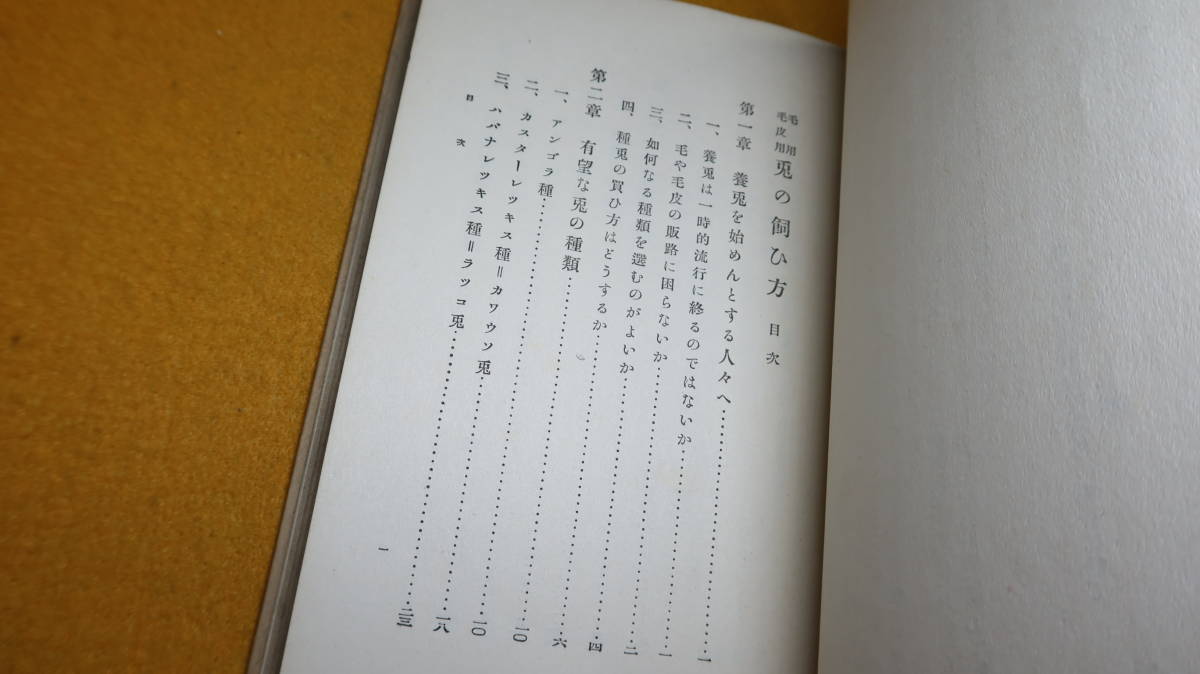 毛用
毛皮用
兎の飼ひ方 目次
第一章 養兎を始めんとする人々へ……………………一
一、養兎は一時的流行に終るのではないか……………………一
二、毛や毛皮の販路に困らないか……………………二
三、如何なる種類を選むのがよいか……………………四
四、種兎の買ひ方はどうするか……………………六
第二章 有望な兎の種類……………………一〇
一、アンゴラ種……………………一〇
二、カスターレツキス種＝カワウソ兎……………………一八
三、ハバナレツキス種＝ラツコ兎……………………二三
目次
一